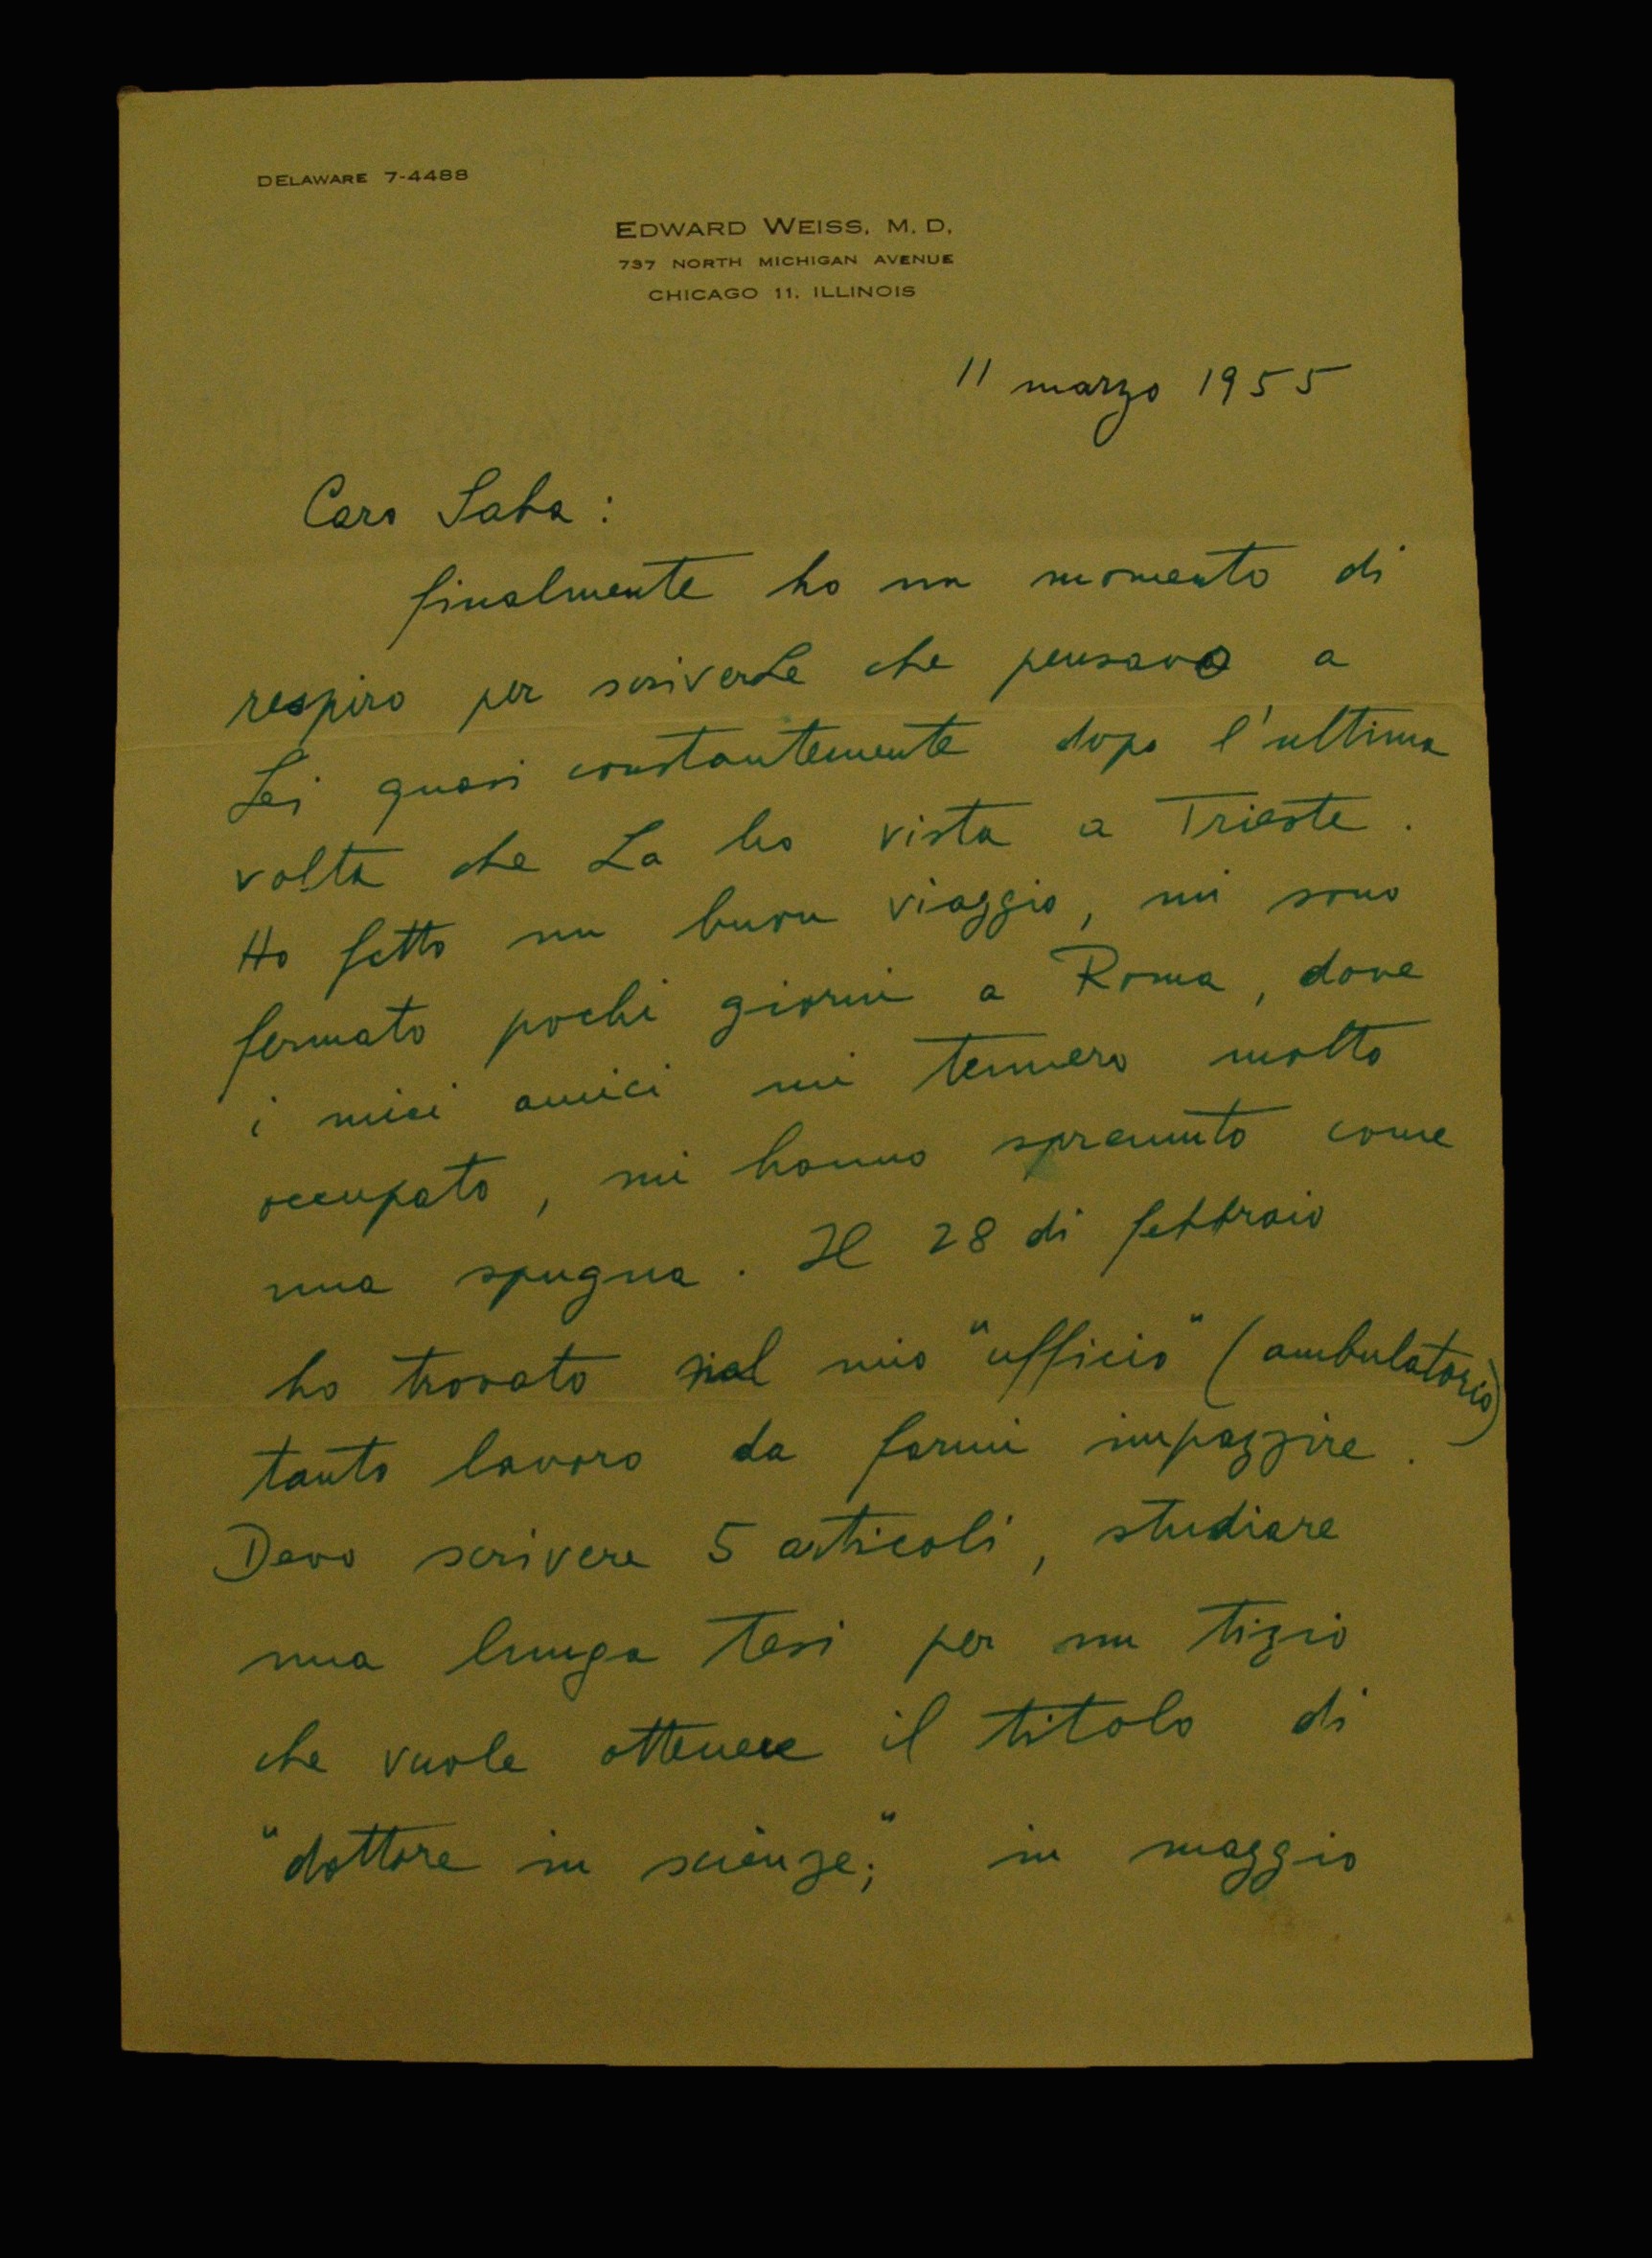 DELAWARE 7-4488
EDWARD WEISS, M. D.
737 NORTH MICHIGAN AVENUE
CHICAGO 11, ILLINOIS
11 marzo 1955
Caro Saba :
finalmente ho un momento di
respiro per scriverLe che pensavo a
Lei quasi constantemente dopo l'ultima
volta che La ho vista a Trieste .
Ho fatto un buon viaggio, mi sono
fermato pochi giorni a Roma, dove
i miei amici mi tennero molto
occupato, mi hanno spremuto come
una spugna. Il 28 di febbraio
ho trovato nel mio "ufficio" (ambulatorio)
tanto lavoro da farmi impazzire.
Devo scrivere 5 articoli, studiare
una lunga tesi per un tizio
che vuole ottenere il titolo di
"dottore in scienze;" in maggio